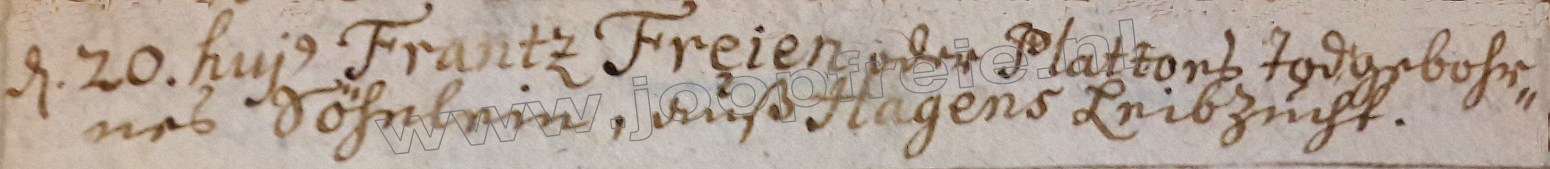 d. 20. huj9 Frantz Freien oder Plattors todgebohr„
nes Söhnlein, auß Hagens Leibzucht.
www.joopfreie.nl